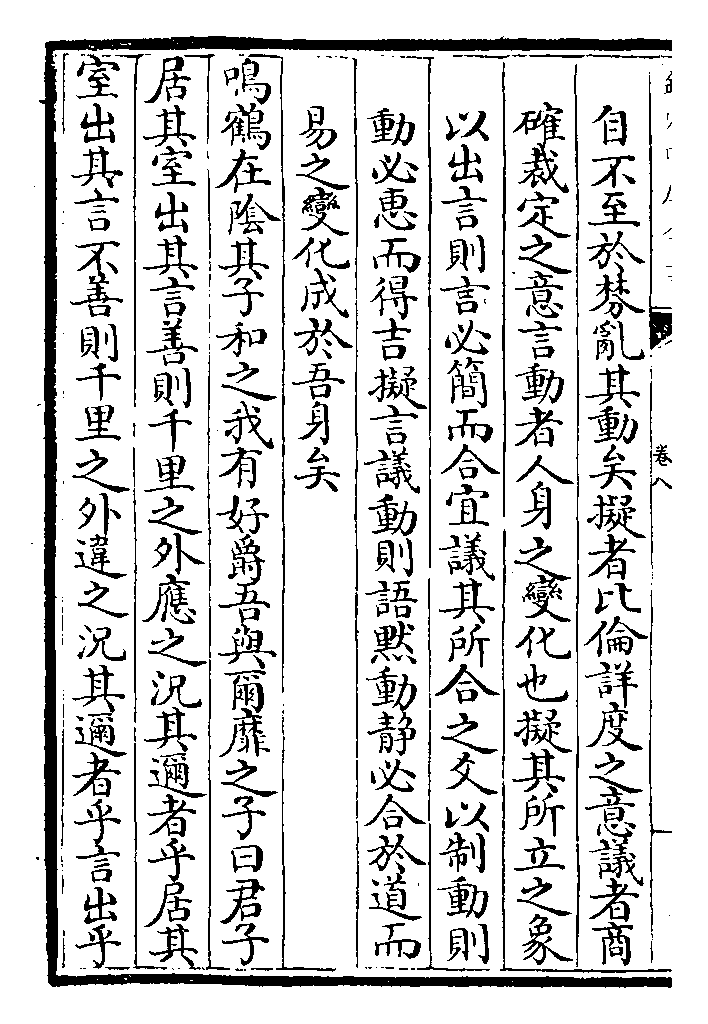 自不至於棼亂其動矣擬者比倫詳度之意議者商
確裁定之意言動者人身之變化也擬其所立之象
以出言則言必簡而合宜議其所合之爻以制動則
動必恵而得吉擬言議動則語黙動静必合於道而
易之變化成於吾身矣
鳴鶴在陰其子和之我有好爵吾與爾靡之子曰君子
居其室出其言善則千里之外應之況其邇者乎居其
室出其言不善則千里之外違之況其邇者乎言出乎
卷八